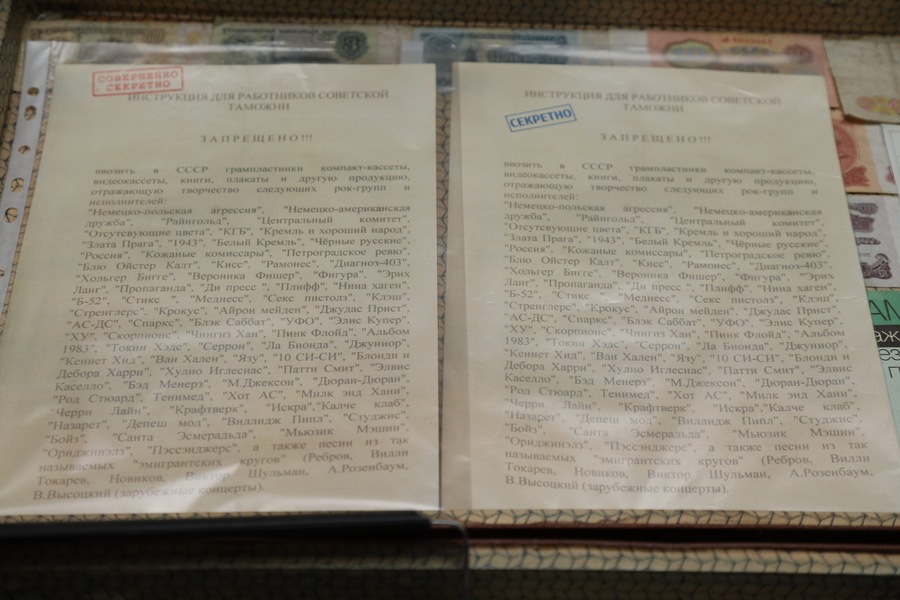 СОВЕРШЕННО
СЕКРЕТНО
ИНСТРУКЦИЯ ДЛЯ РАБОТНИКОВ СОВЕТСКОЙ
ТАМОЖНИ
ЗАПРЕЩЕНО!!!
ввозить в СССР грампластинки компакт-кассеты,
видеокассеты, книги, плакаты и другую продукцию,
отражающую творчество следующих рок-групп и
исполнителей:
"Немецко-польская агрессия", "Немецко-американская
дружба", "Райнгольд", "Центральный комитет",
"Отсутсвующие цвета", "КГБ", "Кремль и хороший народ",
"Злата Прага", "1943", "Белый Кремль", "Чёрные русские",
"Россия", "Кожаные комиссары", "Петроградское ревю",
"Блю Ойстер Калт", "Кисс", "Рамонес", "Диагноз-403",
"Хольгер Бигге", "Вероника Фишер", "Фигура", "Эрих
Ланг", "Пропаганда", "Ди пресс ", "Плифф", "Нина хаген",
"Б-52", "Стикс ", "Меднесс", "Секс пистолз", "Клэш",
"Стренглерс", "Крокус", "Айрон мейден", "Джудас Прист",
"АС-ДС", "Спаркс", "Блэк Саббат", "УФО", "Элис Купер",
"ХУ", "Скорпионс", "Чингиз Хан", "Пинк Флойд", "Альбом
1983", "Токин Хэдс", "Серрон", "Ла Бионда", "Джуниор",
"Кеннет Хид", "Ван Хален", "Язу", "10 СИ-СИ", "Блонди и
Дебора Харри", "Хулио Иглесиас", "Патти Смит", "Элвис
Каселло", "Бэд Менерз", "М.Джексон", "Дюран-Дюран",
"Род Стюард", Тенимед", "Хот АС", "Милк энд Хани",
"Черри Лайн", "Крафтверк", "Искра","Калче клаб",
"Назарет", Депеш мод", "Виллидж Пипл", "Студжис",
"Бойз", "Санта Эсмерадьда", "Мьюзик Мэшин",
"Ориджинэлз", "Пэссэнджерс", а также песни из так
называемых "эмигрантских кругов" (Ребров, Вилли
Токарев, Новиков, Виктор Шульман, А.Розенбаум,
В.Высоцкий (зарубежные концерты).
ИНСТРУКЦИЯ ДЛЯ РАБОТНИКОВ СОВЕТСКОЙ
ТАМОЖНИ
СЕКРЕТНО
ЗАПРЕЩЕНО!!!
ввозить в СССР грампластинки компакт-кассеты,
видеокассеты, книги, плакаты и другую продукцию,
отражающую творчество следующих рок-групп и
исполнителей:
"Немецко-польская агрессия", "Немецко-американская
дружба", "Райнгольд", "Центральный комитет",
"Отсутсвующие цвета", "КГБ", "Кремль и хороший народ",
"Злата Прага", "1943", "Белый Кремль", "Чёрные русские",
"Россия", "Кожаные комиссары", "Петроградское ревю",
"Блю Ойстер Калт", "Кисс", "Рамонес", "Диагноз-403",
"Хольгер Бигге", "Вероника Фишер", "Фигура", "Эрих
Ланг", "Пропаганда", "Ди пресс ", "Плифф", "Нина хаген",
"Б-52", "Стикс ", "Меднесс", "Секс пистолз", "Клэш",
"Стренглерс", "Крокус", "Айрон мейден", "Джудас Прист",
"АС-ДС", "Спаркс", "Блэк Саббат", "УФО", "Элис Купер",
"ХУ", "Скорпионс", "Чингиз Хан", "Пинк Флойд", "Альбом
1983", "Токин Хэдс", "Серрон", "Ла Бионда", "Джуниор",
"Кеннет Хид", "Ван Хален", "Язу", "10 СИ-СИ", "Блонди и
Дебора Харри", "Хулио Иглесиас", "Патти Смит", "Элвис
Каселло", "Бэд Менерз", "М.Джексон", "Дюран-Дюран",
"Род Стюард", Тенимед", "Хот АС", "Милк энд Хани",
"Черри Лайн", "Крафтверк", "Искра","Калче клаб",
"Назарет", Депеш мод", "Виллидж Пипл", "Студжис",
"Бойз", "Санта Эсмерадьда", "Мьюзик Мэшин",
"Ориджинэлз", "Пэссэнджерс", а также песни из так
называемых "эмигрантских кругов" (Ребров, Вилли
Токарев, Новиков, Виктор Шульман, А.Розенбаум,
В.Высоцкий (зарубежные концерты).